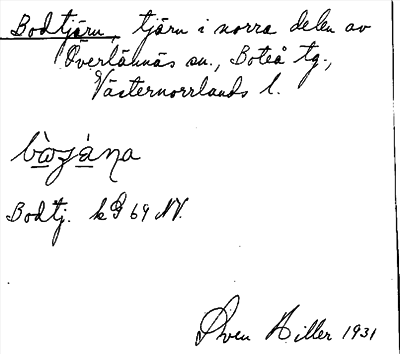 Bodtjärn, tjärn i norra delen av
Överlännäs sn., Boteå tg.,
Västernorrlands l.
Bodtj. k 69 NV.
Sven Hiller 1931